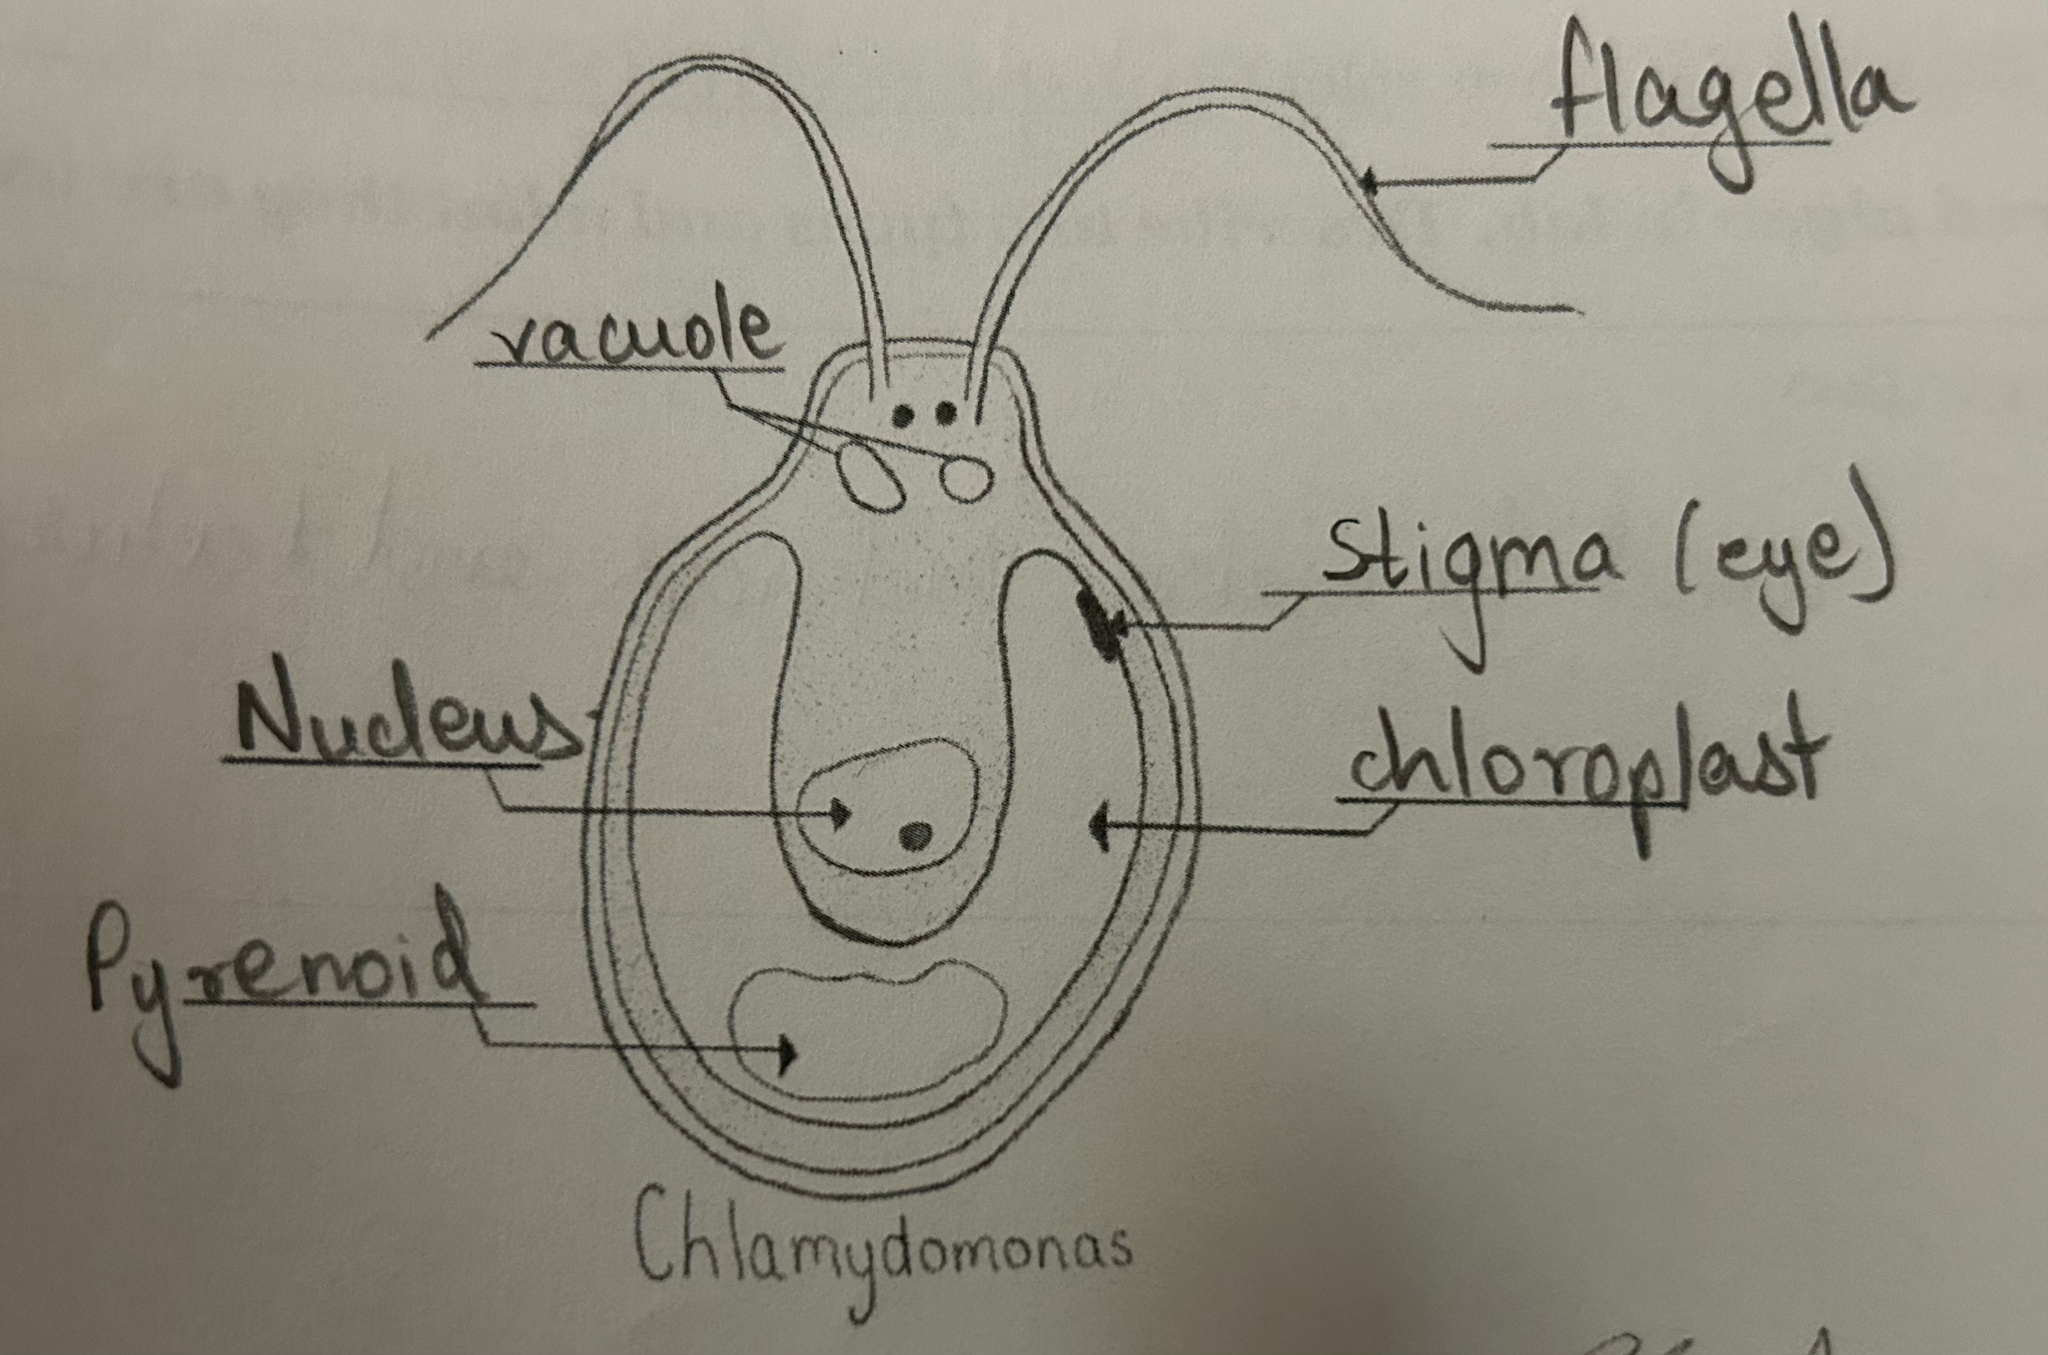 flagella
vacuole
Stigma (eye)
Nucleus
chloroplast
Pyrenoid
Chlamydomonas